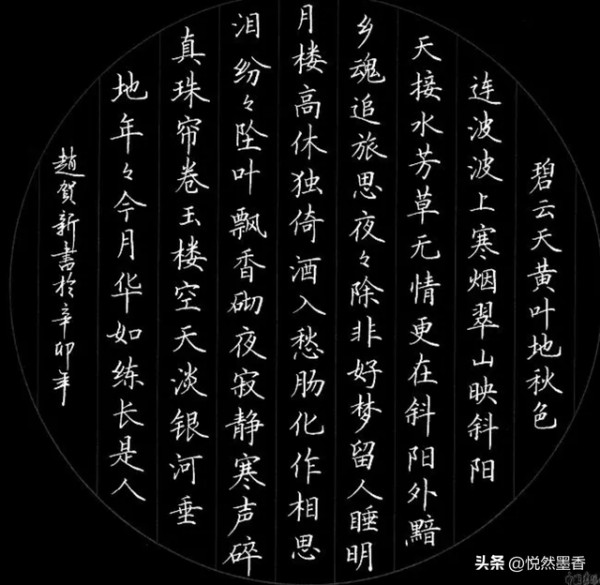 碧云天黄叶地秋色
连波波上寒烟翠山映斜阳
天接水芳草无情更在斜阳外黯
乡魂追旅思夜々除非好梦留人睡明
月楼高休独倚酒入愁肠化作相思
泪纷々坠叶飘香砌夜寂静寒声碎
真珠帘卷玉楼空天淡银河垂
地年々今月华如练长是人
趙贺新書於辛卯年
头条 @悦然墨香